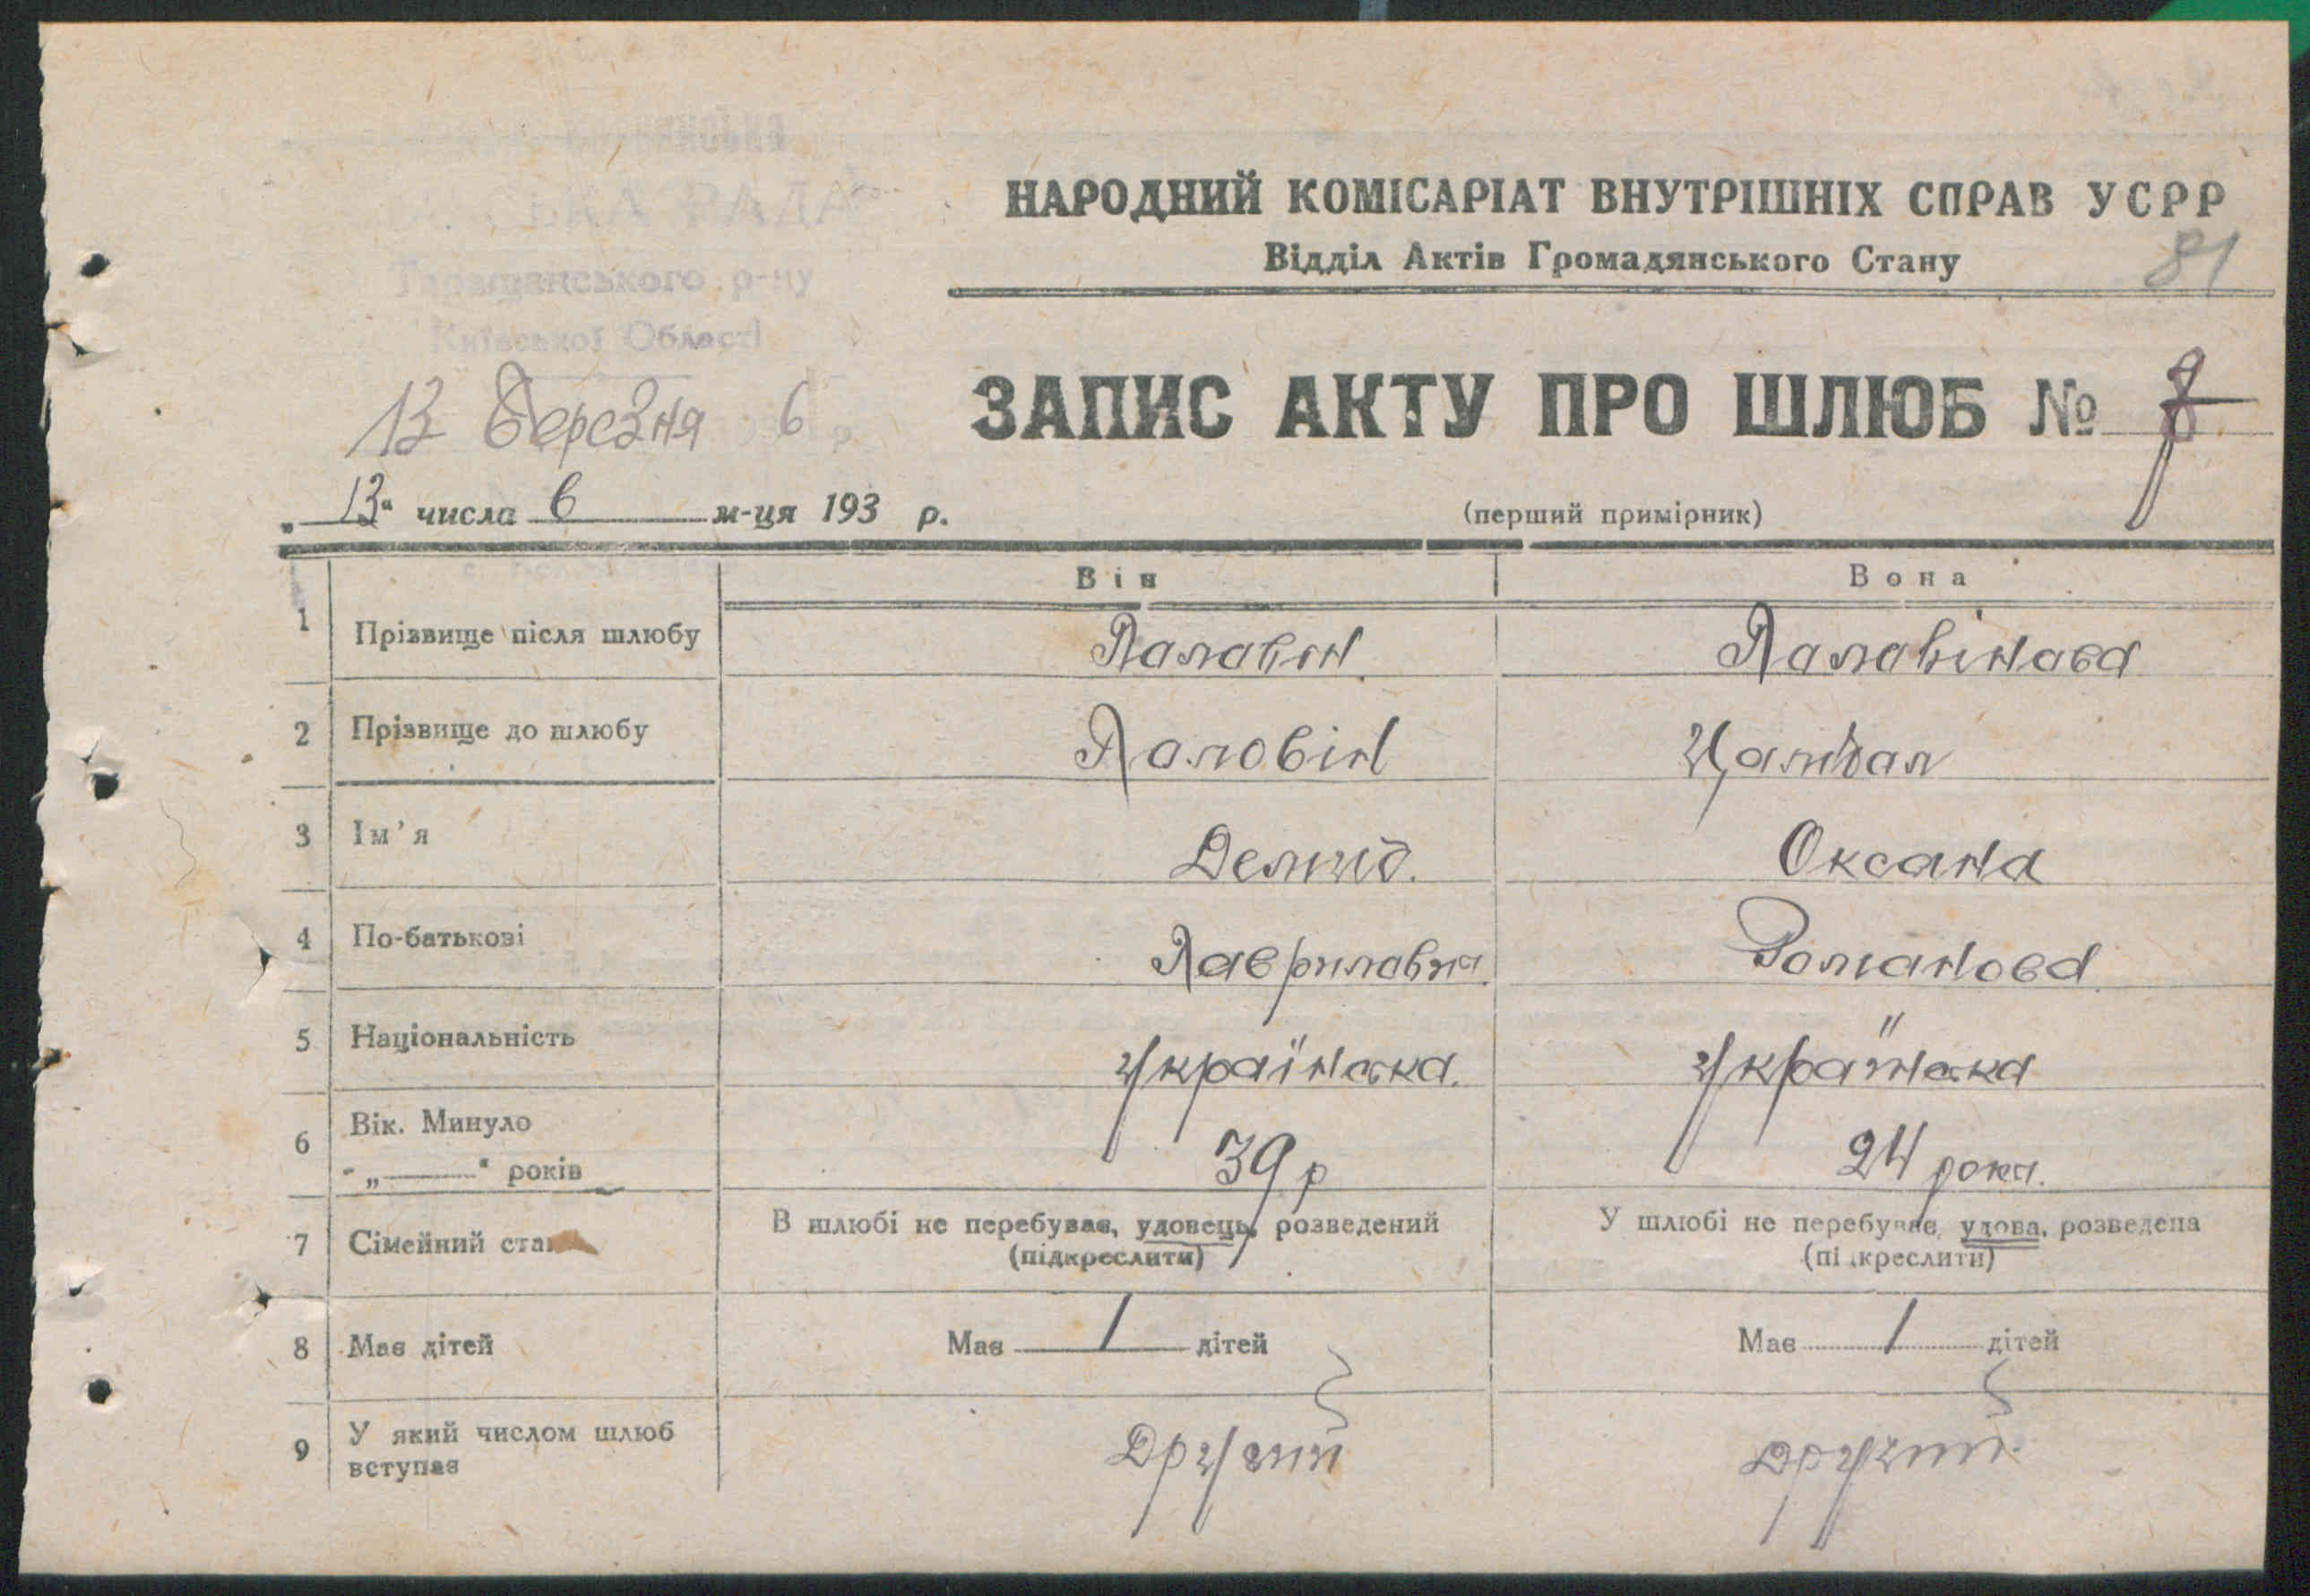 ЬКА РАДА
Таращанського р-ну
Київської Області
13 Березня 6 р.
НАРОДНИЙ КОМІСАРІАТ ВНУТРІШНІХ СПРАВ УСРР
Відділ Актів Громадянського Стану
81
ЗАПИС АКТУ ПРО ШЛЮБ №
„13“ числа 6 м-ця 193 р.
(перший примірник)
Він
Вона
1 Прізвище після шлюбу Палавін Палавінова
2 Прізвище до шлюбу Паловін
3 Ім’я Демид. Оксана
4 По-батькові Романова
5 Національність Українська. Українська
6 Вік. Минуло
„—“ років 39 р 24 роки.
7 Сімейний стан В шлюбі не перебуває, удовець, розведений У шлюбі не перебуває, удова, розведена
(підкреслити) (підкреслити)
8 Має дітей Має 1 дітей Має 1 дітей
9 У який числом шлюб
вступає Другий Другий.